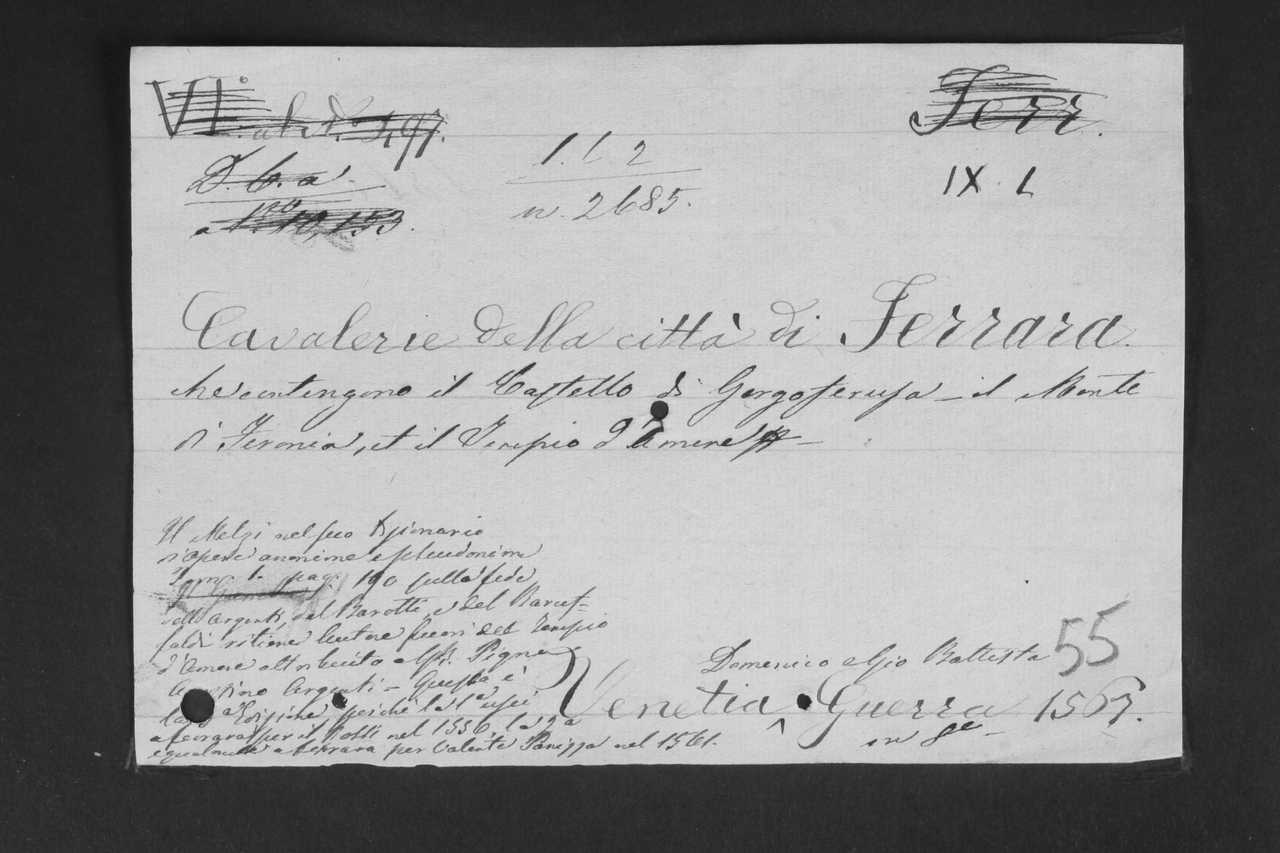 VI. al N. 5,97.
Ferr.
D. 6. a.
1. L 2
IX. L
n. 2685.
a N.º 10,153.
Cavalerie della città di Ferrara.
che contengono il Castello di Gorgoferusa – il Monte
di Feronia, et il Tempio d'Amore –
Il Melzi nel suo Dizionario
d'opere anonime e pseudonime
Tom. 1. pag. 190 sulla fede
dell'Argenti, del Barotti, e del Baruf-
faldi ritiene autore fuori del Tempio
d'Amore attribuito al Pigna
Agostino Argenti – Questa è
la 3ª Edizione, perché la 1ª uscì
a Ferrara per il Rossi nel 1556 la 2ª
egualmente a Ferrara per Valente Panizza nel 1561.
55
Domenico e Gio Battista
Venetia, Guerra 1567.
in 8º –